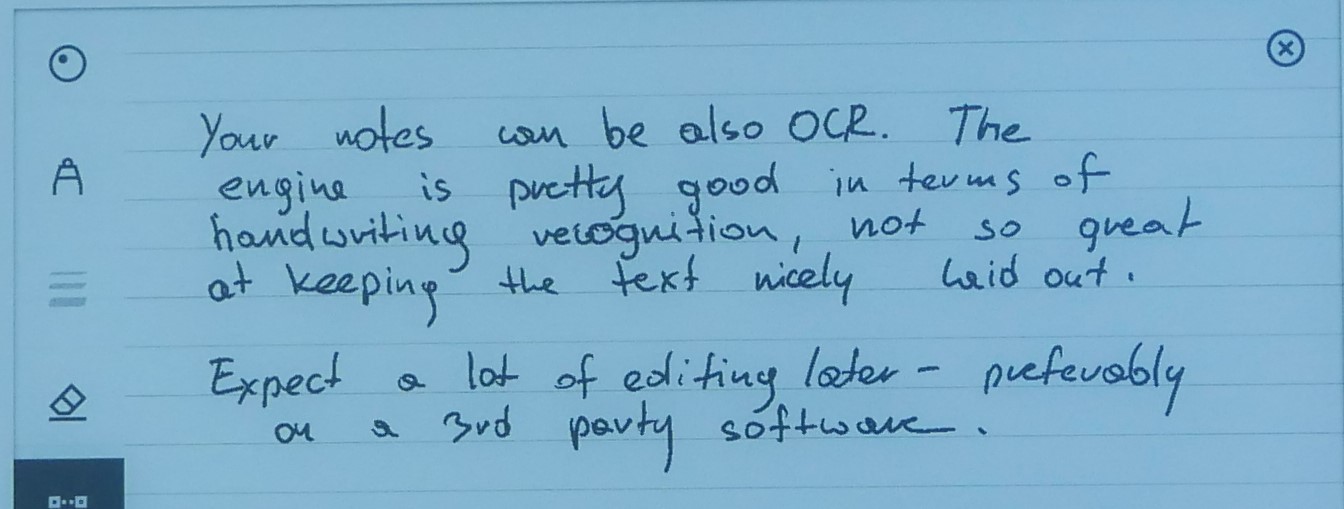 Your notes can be also OCR. The
engine is pretty good in terms of
handwriting recognition, not so great
at keeping the text nicely laid out.
Expect a lot of editing later - preferably
on a 3rd party software.